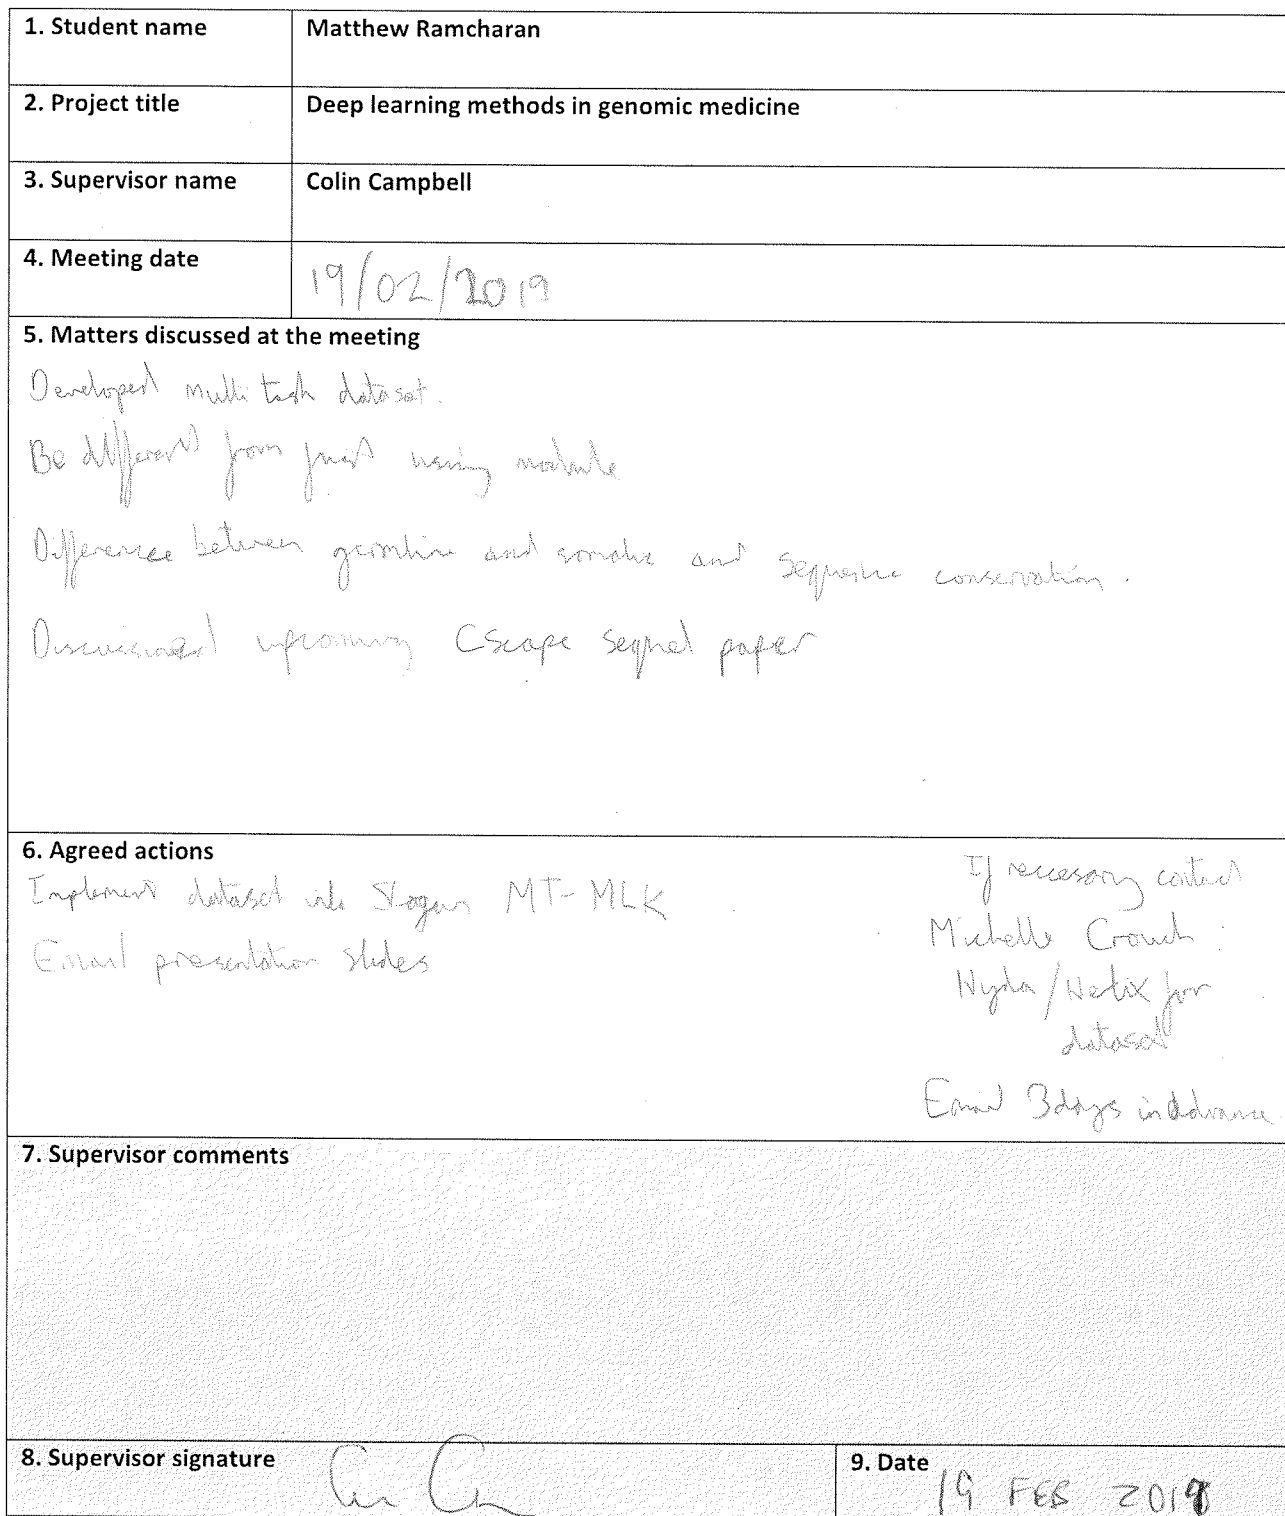 1. Student name
Matthew Ramcharan
2. Project title
Deep learning methods in genomic medicine
3. Supervisor name
Colin Campbell
4. Meeting date
19/02/2019
5. Matters discussed at the meeting
Developed multi task dataset.
Be different from just using module
Difference between germline and somatic and sequence conservation.
upcoming CScape sequel paper
6. Agreed actions
Implement dataset into MT-MLK
Email presentation slides
If necessary contact
Michelle Crouch :
for
dataset
Email 3 days in advance.
7. Supervisor comments
8. Supervisor signature
9. Date
19 FEB 2019